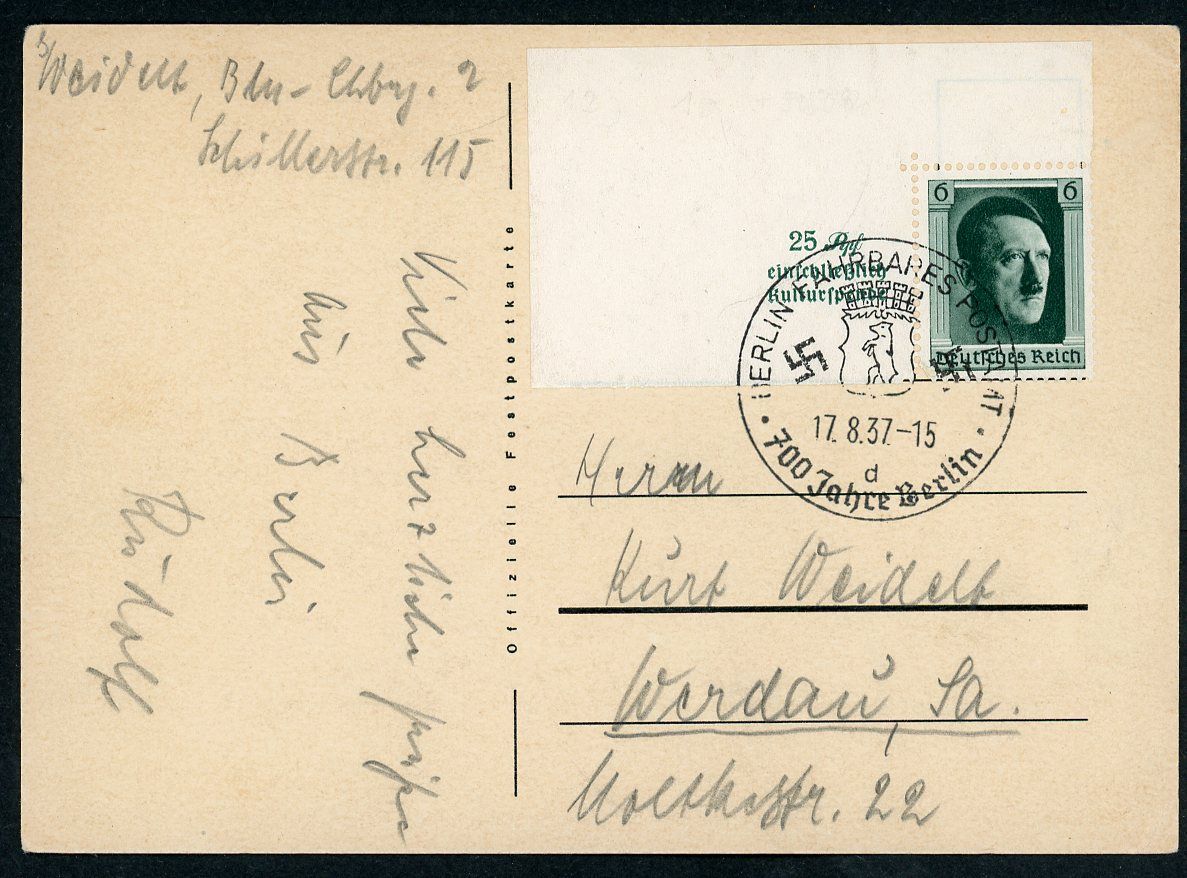 Weidelt, Bln-Chbg. 2
Schillerstr. 115
Viele herzliche Grüße
aus Berlin
Rudolf
Offizielle Festpostkarte
25 Rpf
einschließlich
Kulturspende
6 6
Deutsches Reich
BERLIN FAHRBARES POSTAMT
17.8.37-15
d
700 Jahre Berlin
Herrn
Kurt Weidelt
Werdau, Sa.
Moltkestr. 22